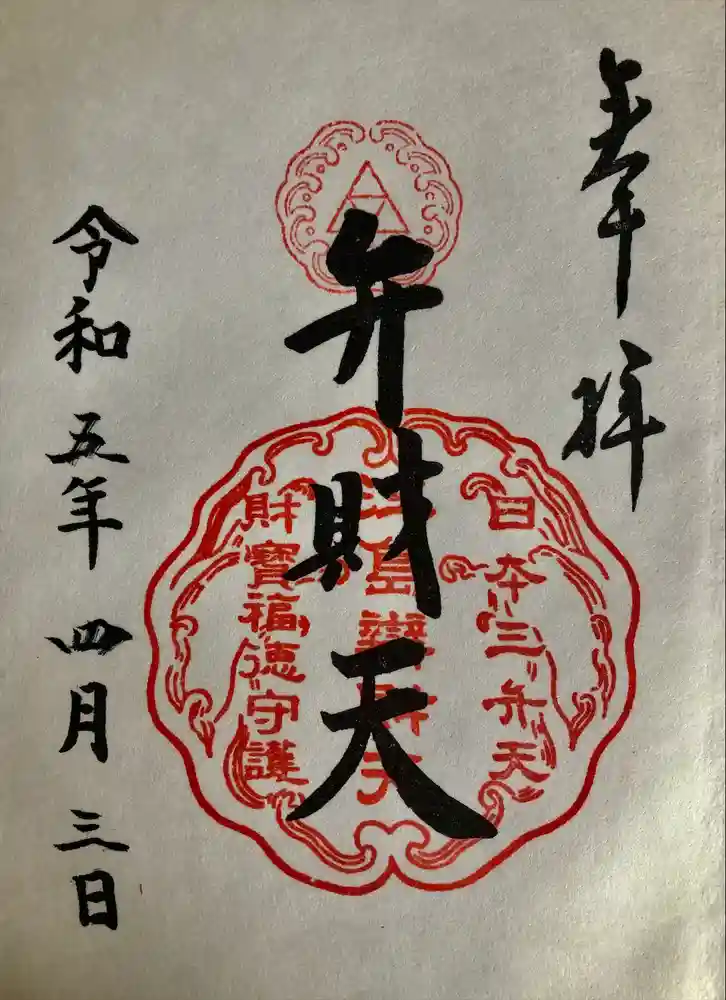 奉拝
弁財天
日本三弁天
江島辯財天
財寶福徳守護
令和五年四月三日